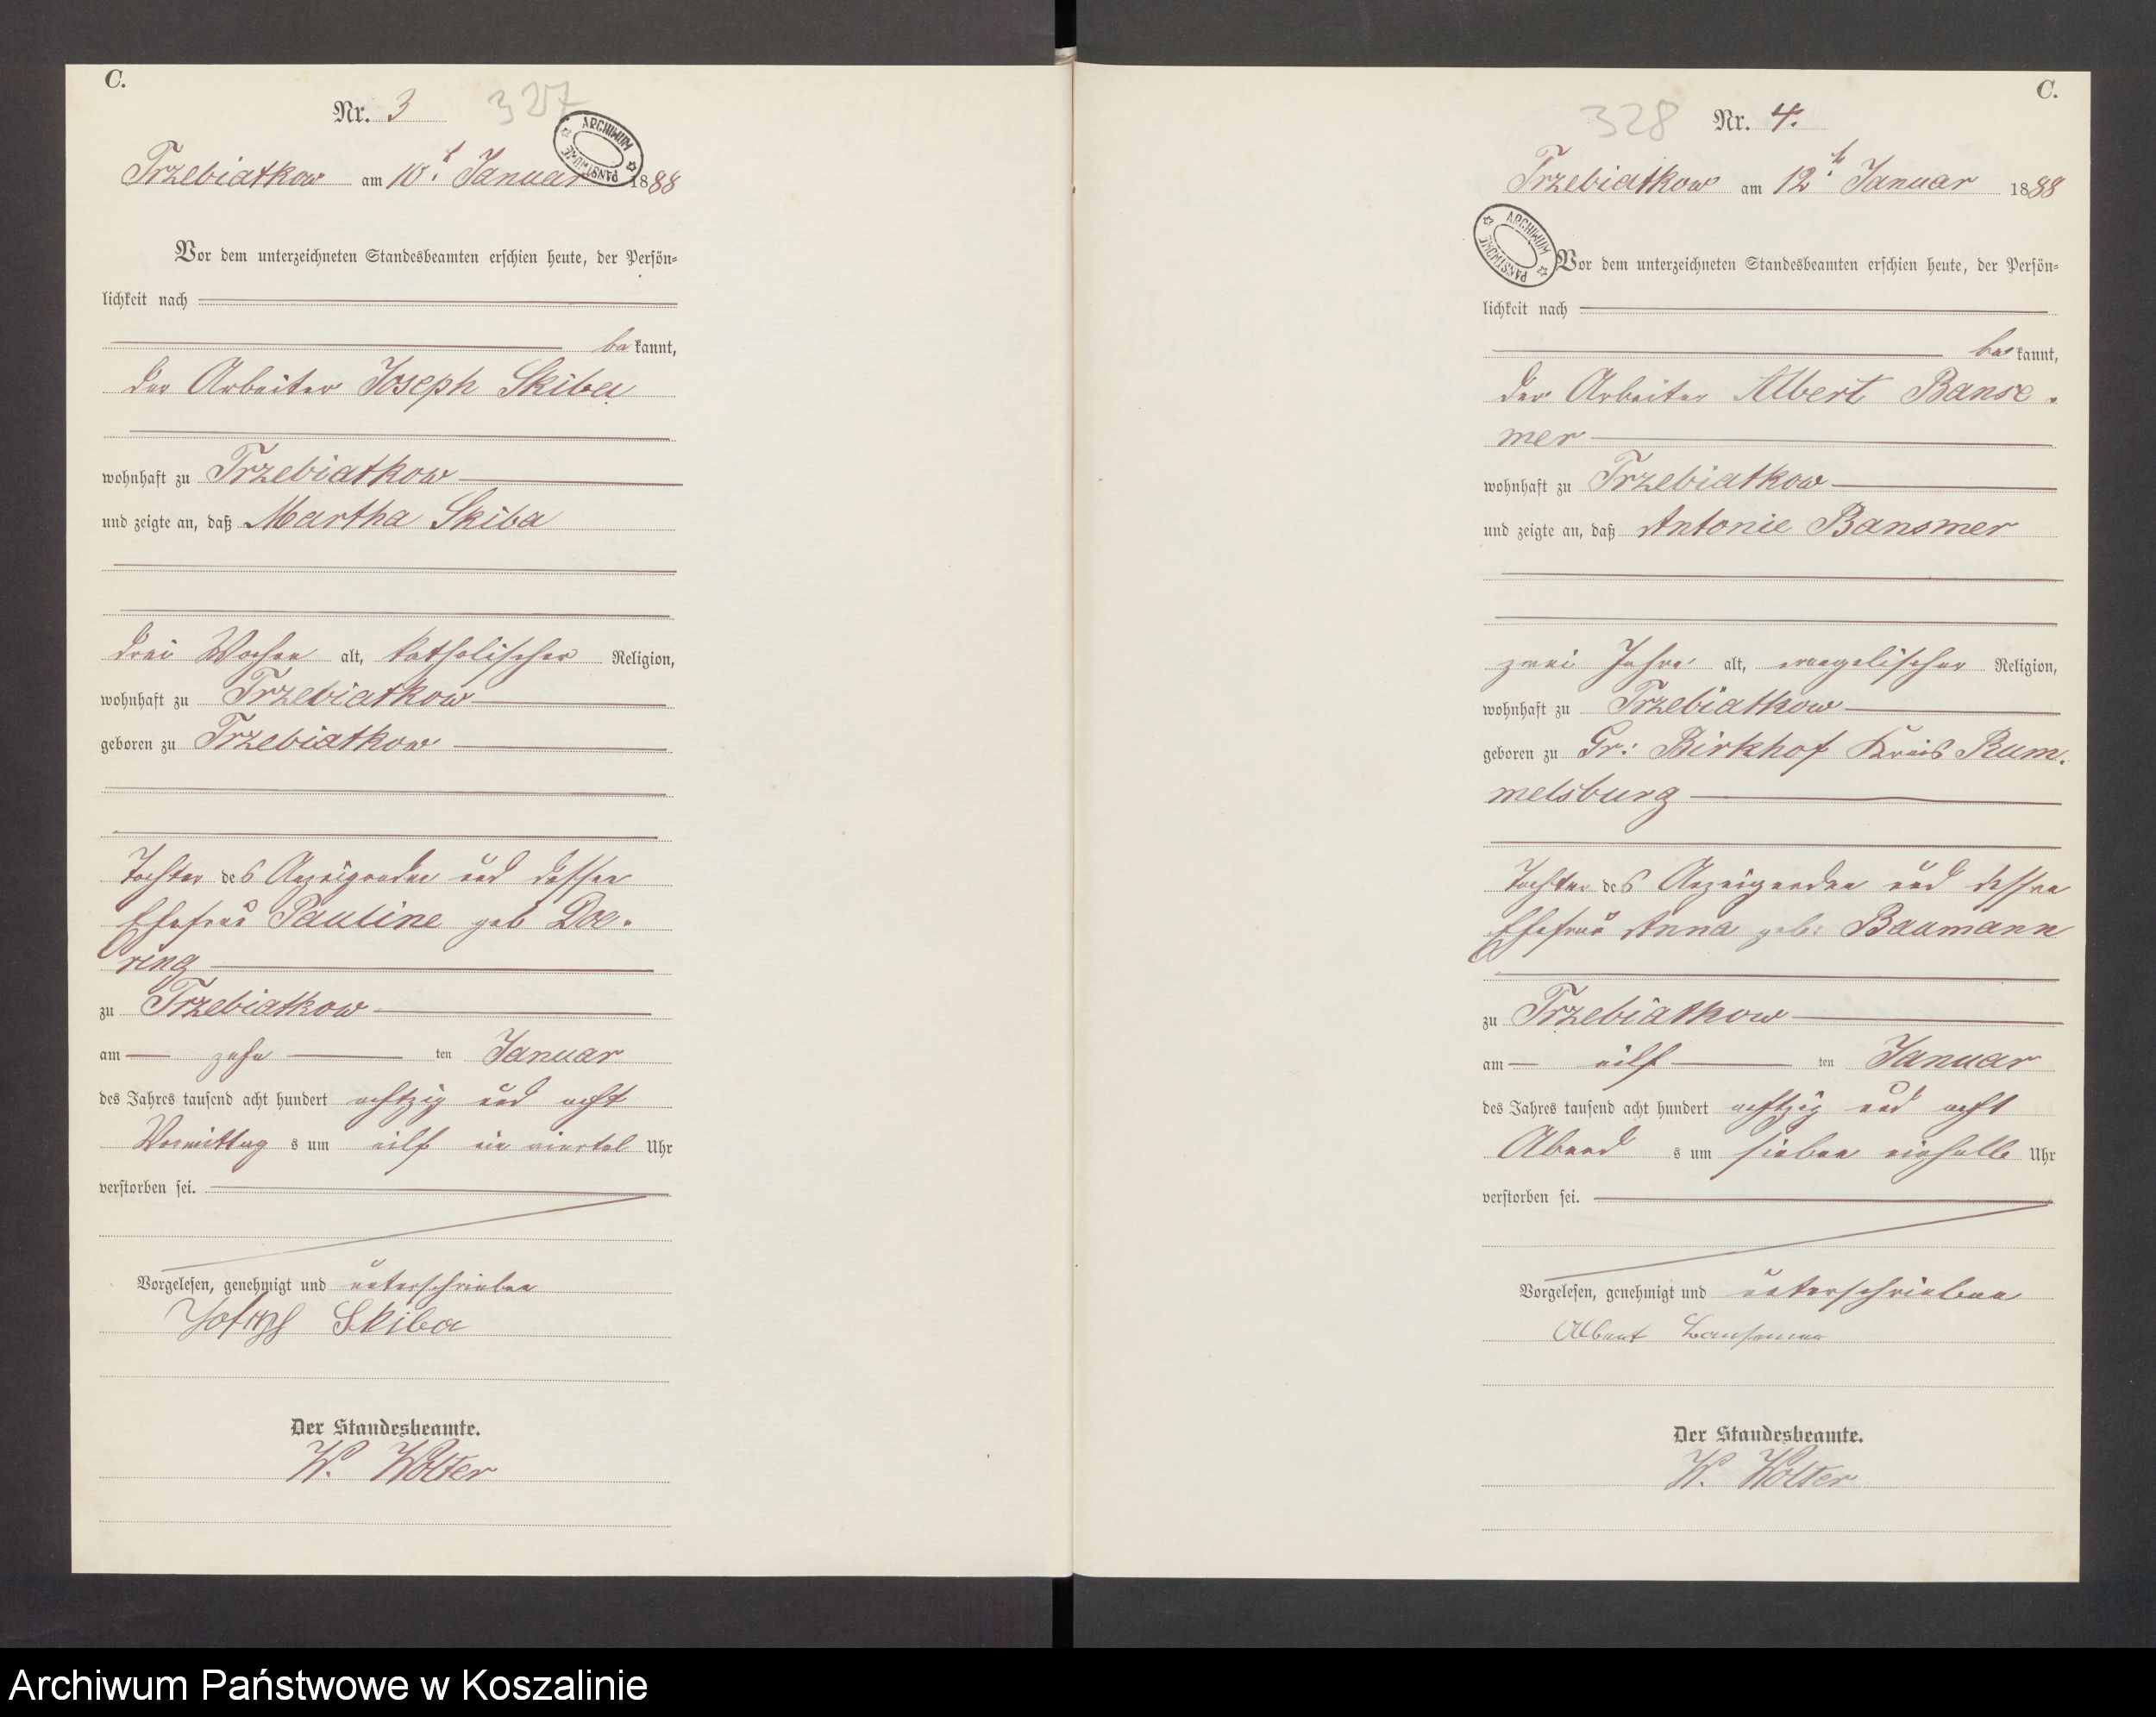 C.
Nr. 3
327
ARCHIWUM PAŃSTWOWE
Trzebiatkow am 10t. Januar 1888
Vor dem unterzeichneten Standesbeamten erschien heute, der Persön-
lichkeit nach
be kannt,
der Arbeiter Joseph Skiba
wohnhaft zu Trzebiatkow
und zeigte an, daß Martha Skiba
drei Wochen alt, katholischer Religion,
wohnhaft zu Trzebiatkow
geboren zu Trzebiatkow
Tochter des Anzeigenden und dessen
Ehefrau Pauline geb Doe-
ring
zu Trzebiatkow
am zehn ten Januar
des Jahres tausend acht hundert achtzig und acht
Vormittag s um eilf ein viertel Uhr
verstorben sei.
Vorgelesen, genehmigt und unterschrieben
Joseph Skiba
Der Standesbeamte.
W. Wolter
C.
328
Nr. 4.
Trzebiatkow am 12t. Januar 1888
ARCHIWUM PAŃSTWOWE
Vor dem unterzeichneten Standesbeamten erschien heute, der Persön-
lichkeit nach
be kannt,
der Arbeiter Albert Banse-
mer
wohnhaft zu Trzebiatkow
und zeigte an, daß Antonie Bansmer
zwei Jahre alt, evangelischer Religion,
wohnhaft zu Trzebiatkow
geboren zu Gr: Birkhof Kreis Rum-
melsburg
Tochter des Anzeigenden und dessen
Ehefrau Anna geb: Baumann
zu Trzebiatkow
am eilf ten Januar
des Jahres tausend acht hundert achtzig und acht
Abend s um sieben einhalb Uhr
verstorben sei.
Vorgelesen, genehmigt und unterschrieben
Albert Bansemer
Der Standesbeamte.
W. Wolter
Archiwum Państwowe w Koszalinie